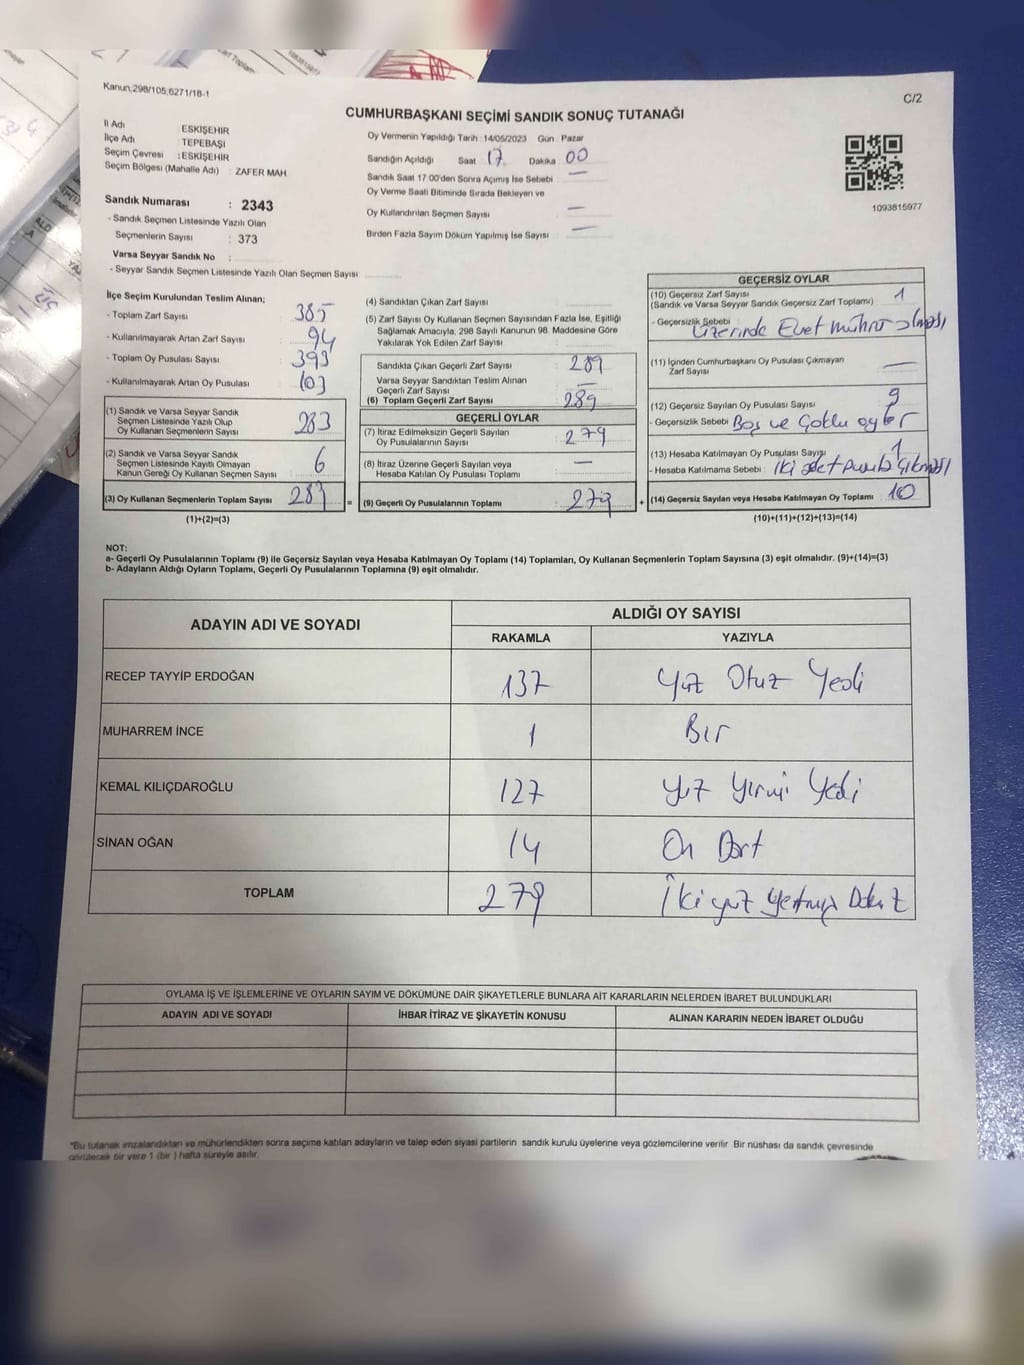 Kanun,298/105,6271/18-1
C/2
CUMHURBAŞKANI SEÇİMİ SANDIK SONUÇ TUTANAĞI
İl Adı : ESKİŞEHİR
İlçe Adı : TEPEBAŞI
Seçim Çevresi : ESKİŞEHİR
Seçim Bölgesi (Mahalle Adı) : ZAFER MAH.
Sandık Numarası : 2343
- Sandık Seçmen Listesinde Yazılı Olan
Seçmenlerin Sayısı : 373
Varsa Seyyar Sandık No :
- Seyyar Sandık Seçmen Listesinde Yazılı Olan Seçmen Sayısı
Oy Vermenin Yapıldığı Tarih 14/05/2023 Gün Pazar
Sandığın Açıldığı Saat 17 Dakika 00
Sandık Saat 17.00'den Sonra Açımış İse Sebebi —
Oy Verme Saati Bitiminde Sırada Bekleyen ve
Oy Kullandırılan Seçmen Sayısı —
Birden Fazla Sayım Döküm Yapılmış İse Sayısı —
1093815977
İlçe Seçim Kurulundan Teslim Alınan;
- Toplam Zarf Sayısı : 385
- Kullanılmayarak Artan Zarf Sayısı : 94
- Toplam Oy Pusulası Sayısı : 393
- Kullanılmayarak Artan Oy Pusulası : 103
(1) Sandık ve Varsa Seyyar Sandık
Seçmen Listesinde Yazılı Olup
Oy Kullanan Seçmenlerin Sayısı : 283
(2) Sandık ve Varsa Seyyar Sandık
Seçmen Listesinde Kayıtlı Olmayan
Kanun Gereği Oy Kullanan Seçmen Sayısı : 6
(3) Oy Kullanan Seçmenlerin Toplam Sayısı : 289
(1)+(2)=(3)
(4) Sandıktan Çıkan Zarf Sayısı
(5) Zarf Sayısı Oy Kullanan Seçmen Sayısından Fazla İse, Eşitliği
Sağlamak Amacıyla; 298 Sayılı Kanunun 98. Maddesine Göre
Yakılarak Yok Edilen Zarf Sayısı
Sandıkta Çıkan Geçerli Zarf Sayısı : 289
Varsa Seyyar Sandıktan Teslim Alınan
Geçerli Zarf Sayısı : —
(6) Toplam Geçerli Zarf Sayısı : 289
GEÇERLİ OYLAR
(7) İtiraz Edilmeksizin Geçerli Sayılan
Oy Pusulalarının Sayısı : 279
(8) İtiraz Üzerine Geçerli Sayılan veya
Hesaba Katılan Oy Pusulası Toplamı : —
= (9) Geçerli Oy Pusulalarının Toplamı : 279 +
GEÇERSİZ OYLAR
(10) Geçersiz Zarf Sayısı
(Sandık ve Varsa Seyyar Sandık Geçersiz Zarf Toplamı) : 1
- Geçersizlik Sebebi : Üzerinde Evet mührü olması
(11) İçinden Cumhurbaşkanı Oy Pusulası Çıkmayan
Zarf Sayısı : —
(12) Geçersiz Sayılan Oy Pusulası Sayısı : 9
- Geçersizlik Sebebi Boş ve Çoklu oylar
(13) Hesaba Katılmayan Oy Pusulası Sayışı : 1
- Hesaba Katılmama Sebebi : iki adet pusula çıkması
(14) Geçersiz Sayılan veya Hesaba Katılmayan Oy Toplamı : 10
(10)+(11)+(12)+(13)=(14)
NOT:
a- Geçerli Oy Pusulalarının Toplamı (9) ile Geçersiz Sayılan veya Hesaba Katılmayan Oy Toplamı (14) Toplamları, Oy Kullanan Seçmenlerin Toplam Sayısına (3) eşit olmalıdır. (9)+(14)=(3)
b- Adayların Aldığı Oyların Toplamı, Geçerli Oy Pusulalarının Toplamına (9) eşit olmalıdır.
ADAYIN ADI VE SOYADI
ALDIĞI OY SAYISI
RAKAMLA YAZIYLA
RECEP TAYYİP ERDOĞAN 137 Yüz Otuz Yedi
MUHARREM İNCE 1 Bir
KEMAL KILIÇDAROĞLU 127 Yüz Yirmi Yedi
SİNAN OĞAN 14 On Dört
TOPLAM 279 İki yüz Yetmiş Dokuz
OYLAMA İŞ VE İŞLEMLERİNE VE OYLARIN SAYIM VE DÖKÜMÜNE DAİR ŞİKAYETLERLE BUNLARA AİT KARARLARIN NELERDEN İBARET BULUNDUKLARI
ADAYIN ADI VE SOYADI İHBAR İTİRAZ VE ŞİKAYETİN KONUSU ALINAN KARARIN NEDEN İBARET OLDUĞU
*Bu tutanak imzalandıktan ve mühürlendikten sonra seçime katılan adayların ve talep eden siyasi partilerin sandık kurulu üyelerine veya gözlemcilerine verilir Bir nüshası da sandık çevresinde
görülecek bir yere 1 (bir ) hafta süreyle asılır.